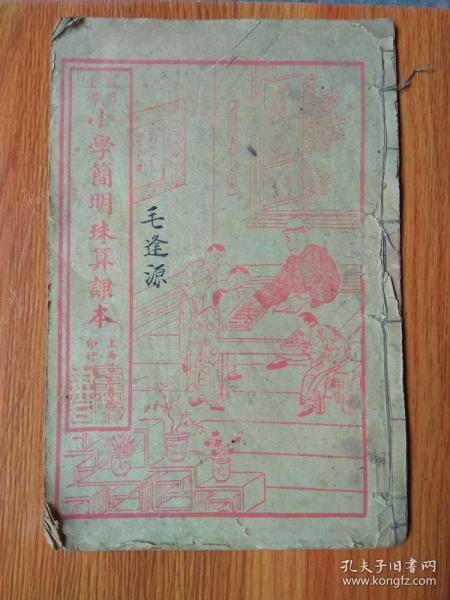 小學簡明珠算課本
上海
印行
毛逢源
孔夫子旧书网
www.kongfz.com